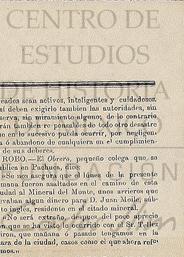 CENTRO DE
ESTUDIOS
DE HISTORIA
cades sean activos, inteligentes y cuidadosos,
sí deben exigirlo tambien las autoridades, sin
serva, sin miramiento alguno; de lo contrario
rán tambien responsables de todo otro desastre
en lo sucesivo pueda ocurrir, por negligen-
ó abandono de cualquiera en el cumplimien-
de sus deberes.
ROBO.—El Obrero, pequeño colega que se
ublica en Pachuca, dice:
"Se nos hace que el lúnes de la presente
mana fueron asaltados en el camino de esta
udad al Mineral del Monte, unos arrieros que
evaban algun dinero para D. Juan Moile, súb-
to inglés, residente en el citado mineral.
"No será extraño, despues del poco aprecio
en que se ha visto lo ocurrido con el Sr. Teller
ron, que mañana ó pasado tengamos
ara de la ciudad, casos como el que ahora refe-
mos."